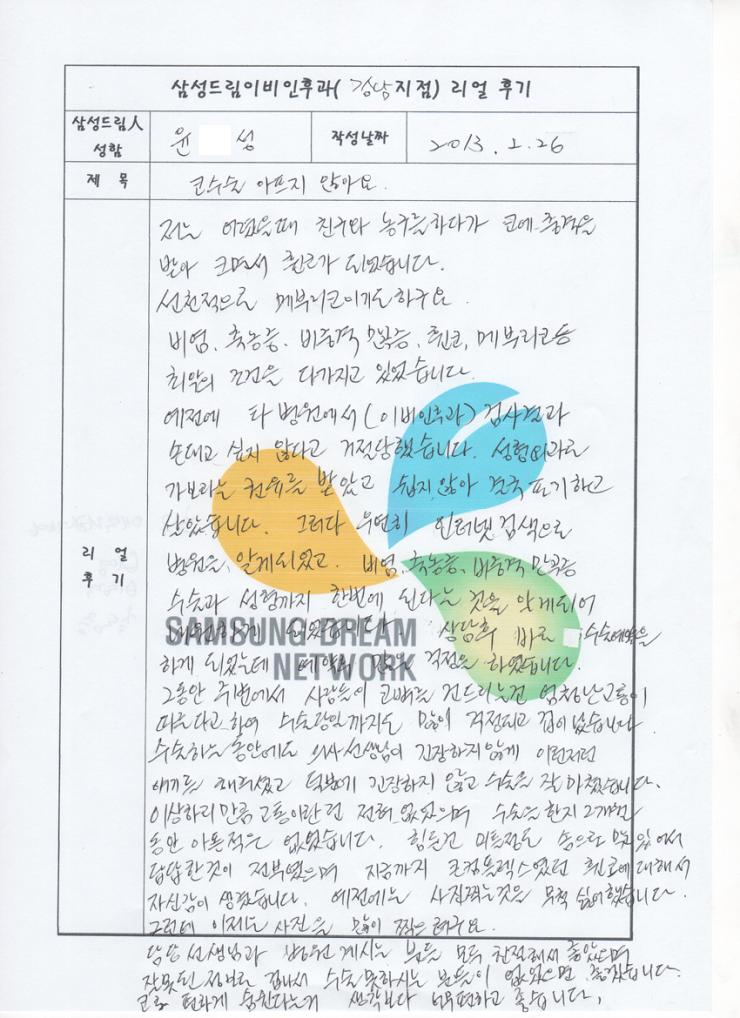 삼성드림이비인후과( 강남지점) 리얼 후기
삼성드림人 성함
윤 성
작성날짜
2013. 2. 26
제 목
코수술 아프지 않아요.
리 얼 후 기
저는 어렸을때 친구와 농구를하다가 코에 충격을
받아 크면서 휜코가 되었습니다.
선천적으로 메부리코이기도하구요.
비염, 축농증, 비중격 만곡증, 휜코, 메부리코등
최악의 조건을 다가지고 있었습니다.
예전에 타 병원에서(이비인후과) 검사결과
손대고 싶지 않다고 거절당했습니다. 성형외과로
가보라는 권유를 받았고 쉽지않아 결국 포기하고
살았습니다. 그러다 우연히 인터넷 검색으로
병원을 알게되었고. 비염, 축농증, 비중격 만곡증
수술과 성형까지 한번에 된다는 것을 알게되어
되었습니다. 상담후 바로 수술예약을
하게 되었는데 걱정을 하였답니다.
그동안 주변에서 사람들이 코뼈를 건드리는건 엄청난고통이
따른다고하여 수술당일까지도 많이 걱정되고 겁이났습니다
수술하는 동안에도 의사선생님이 긴장하지않게 이런저런
얘기를 해주셨고 덕분에 긴장하지 않고 수술을 잘 마쳤습니다.
이상하리 만큼 고통이란건 전혀 없었으며 수술을 한지 2개월
동안 아픈적은 없었습니다. 힘든건 이틀정도 솜으로 막고있어서
답답한것이 전부였으며 지금까지 콤플렉스였던 휜코에 대해서
자신감이 생겼습니다. 예전에는 사진찍는것을 무척 싫어했습니다.
그런데 이제는 사진을 많이 찍을려구요
담당 선생님과 병원 계시는 분들 모두 친절해서 좋았으며
잘못된 정보로 겁나서 수술 못하시는 분들이 없었으면 좋겠습니다.
코로 편하게 숨쉰다는게 생각보다 너무편하고 좋습니다.
SAMSUNG DREAM
NETWORK